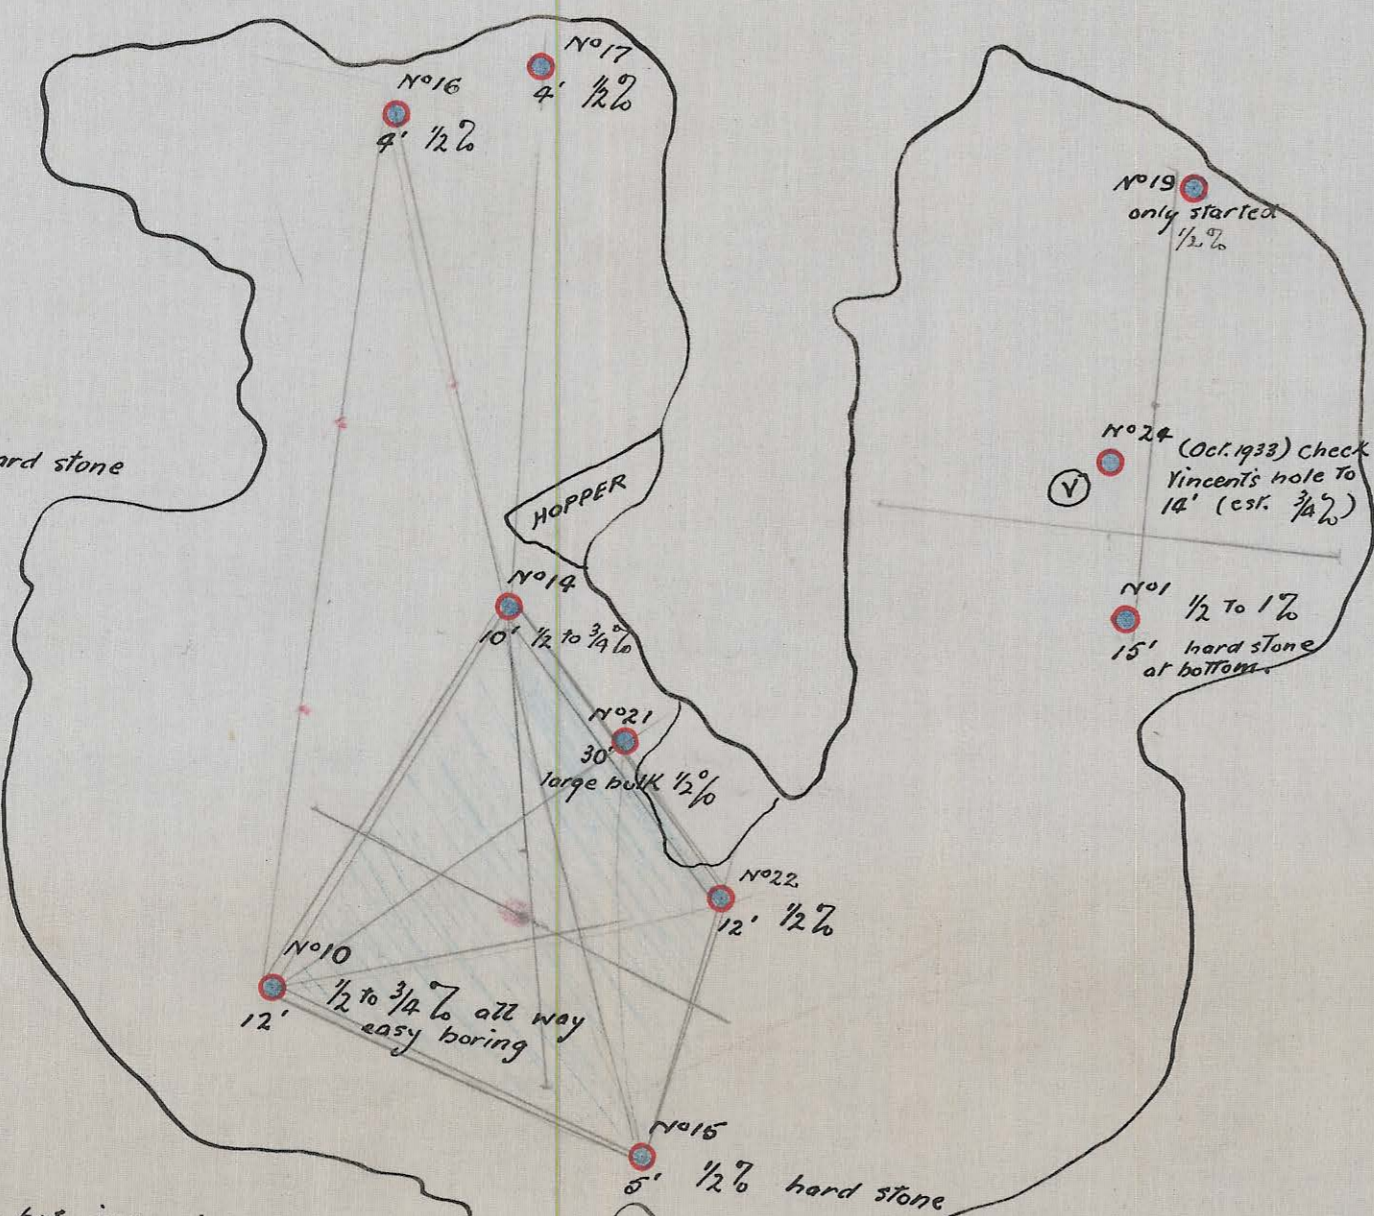 No 17
4' 1/2%
No 16
4' 1/2%
No 19
only started
1/2%
hard stone
No 24 (Oct. 1933) Check
Vincent's hole to
14' (est. 3/4%)
V
HOPPER
No 14
10' 1/2 to 3/4%
No 1 1/2 to 1%
15' hard stone
at bottom.
No 21
30'
large bulk 1/2%
No 22
12' 1/2%
No 10
1/2 to 3/4% all way
12'
easy boring
No 15
5' 1/2% hard stone